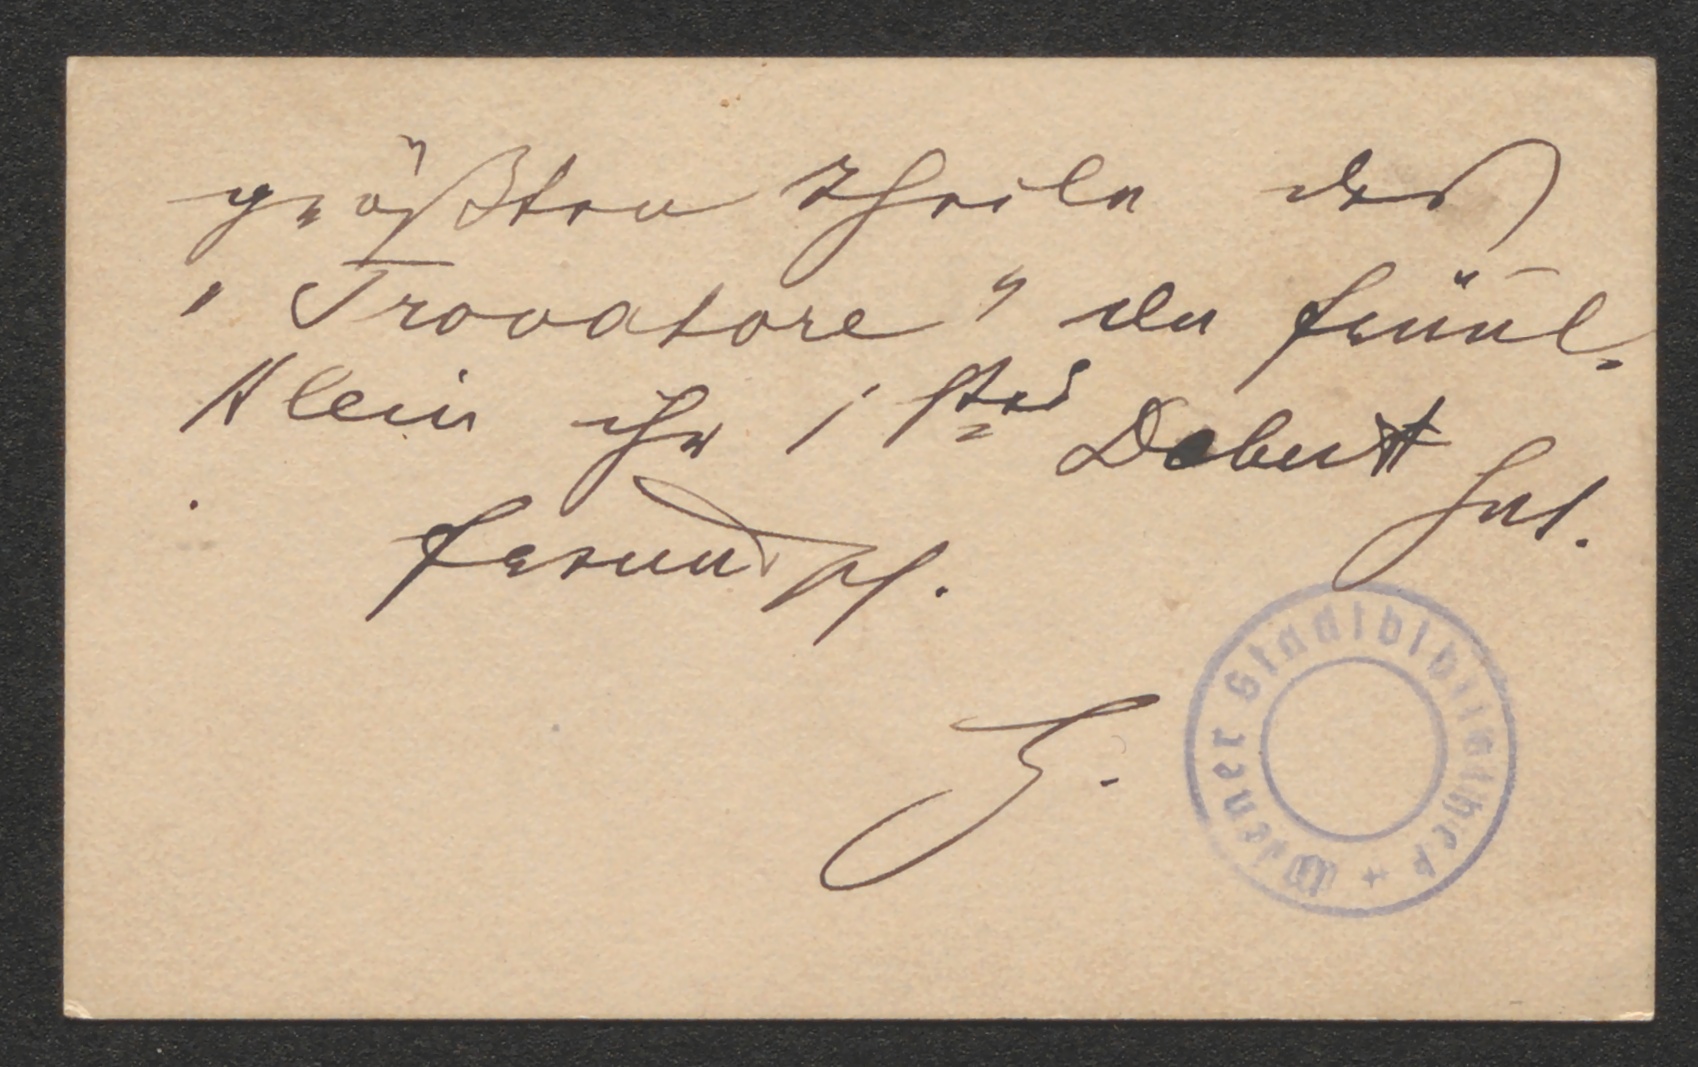 größten Theile des
„Trovatore" da Fräul.
Klein ihr 1stes Debutt hat.
Freundschl.
H.
Wiener Stadtbibliothek